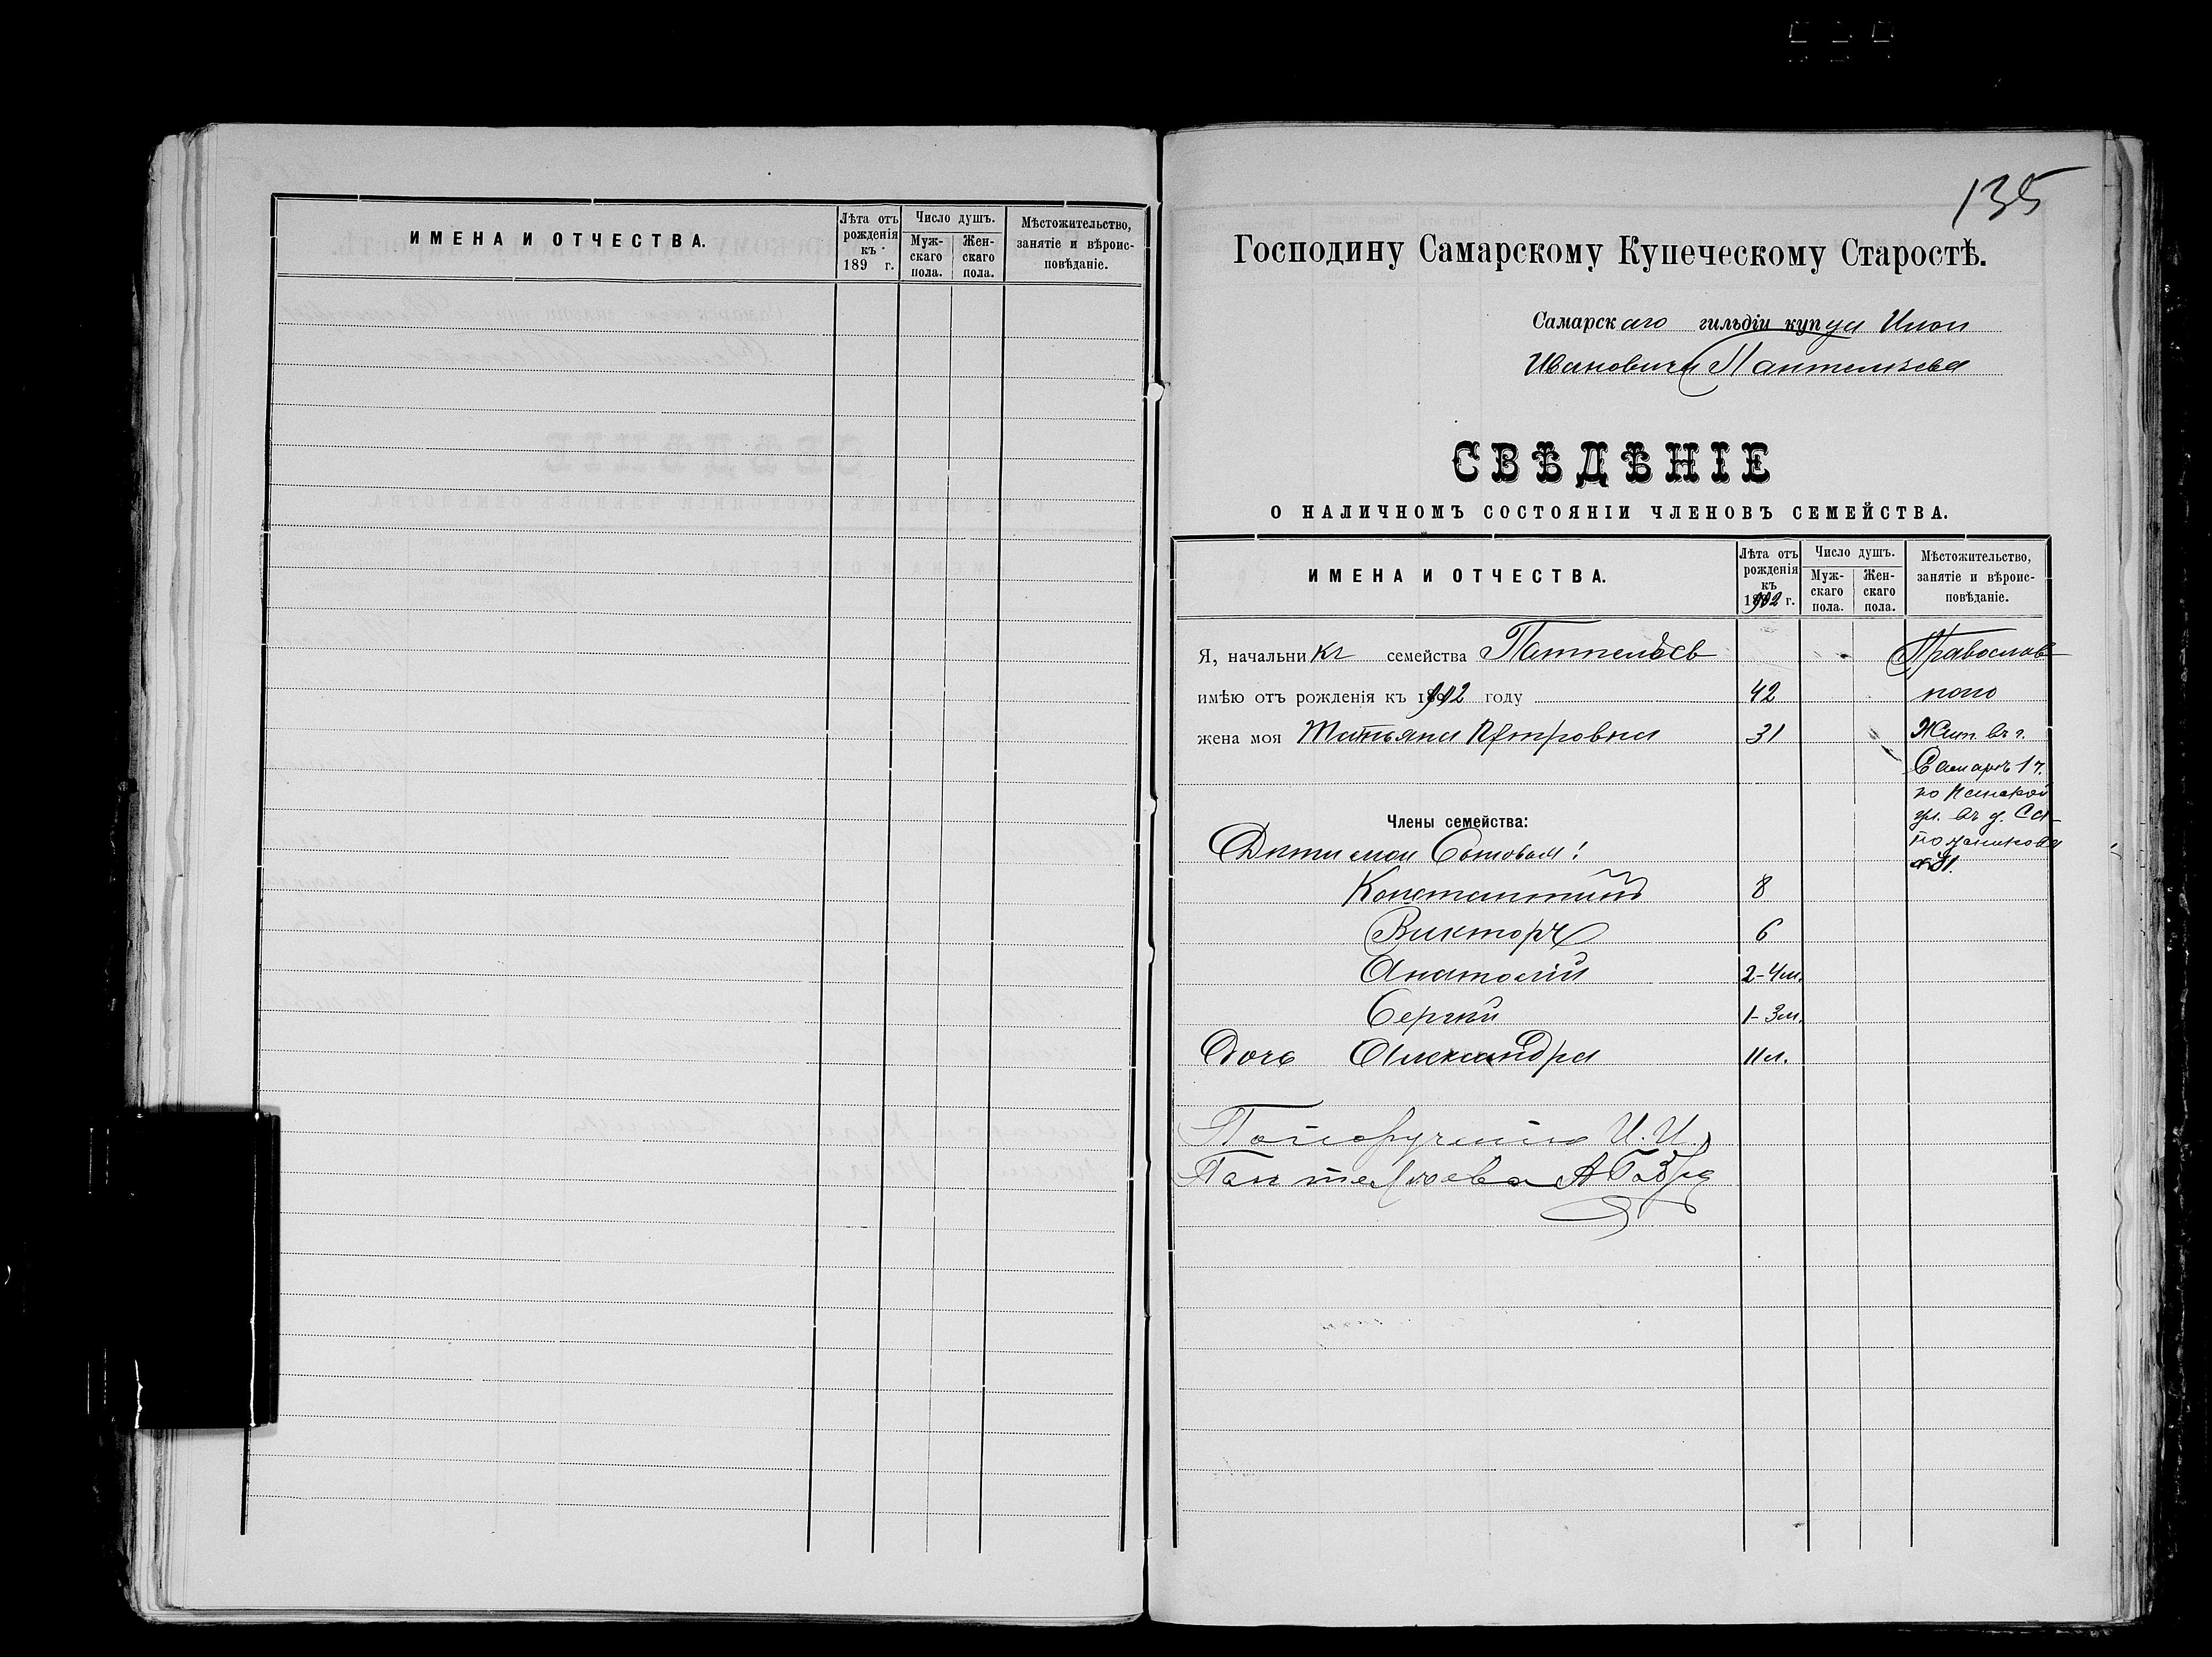 ИМЕНА И ОТЧЕСТВА.
Лѣта отъ рожденія къ 189 г.
Число душъ.
Муж-скаго пола.
Жен-скаго пола.
Мѣстожительство, занятіе и вѣроис-повѣданіе.
135
Господину Самарскому Купеческому Старостѣ.
Самарскаго гильдіи купца
Ивановича Пантелѣева
СВѢДѢНІЕ
О НАЛИЧНОМЪ СОСТОЯНІИ ЧЛЕНОВЪ СЕМЕЙСТВА.
ИМЕНА И ОТЧЕСТВА.
Лѣта отъ рожденія къ 1902 г.
Число душъ.
Муж-скаго пола.
Жен-скаго пола.
Мѣстожительство, занятіе и вѣроис-повѣданіе.
Я, начальникъ семейства Православ
имѣю отъ рожденія къ 1902 году 42 наго
жена моя Татьяна Петровна 31 Жит. въ г.
Самарѣ 1 ч.
по
ул. въ д. Са-
Члены семейства:
пожникова
Дѣти мои Сыновья:
№
Константинъ 8
Викторъ 6
Анатолій 2-4 м.
Сергѣй 1-3 м.
Дочь Александра 11 л.
И. И.
Пантелѣева